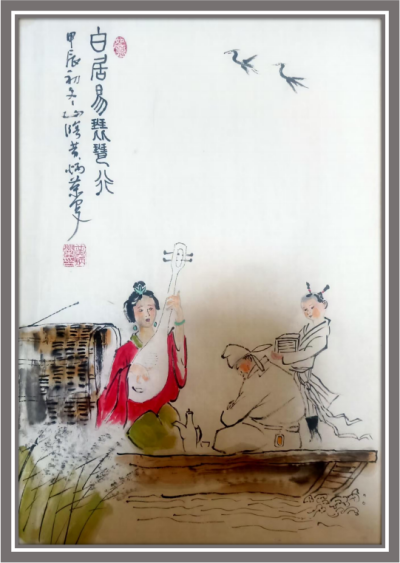 白居易琵琶行
甲辰初冬山黄炳写